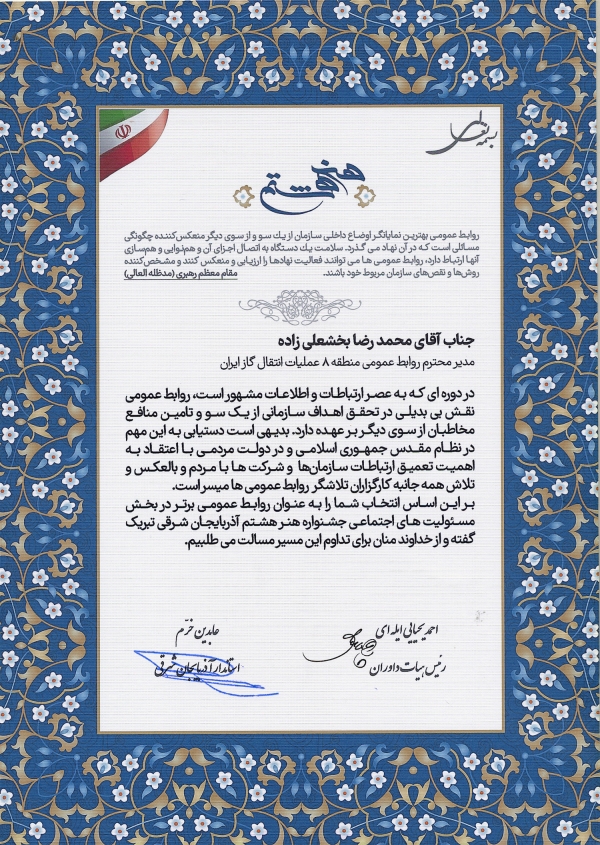 بسمه تعالی
هنر هشتم
روابط عمومی بهترین نمایانگر اوضاع داخلی سازمان از یك سو و از سوی دیگر منعکس‌کننده چگونگی
مسائلی است که در آن نهاد می گذرد. سلامت یك دستگاه به اتصال اجزای آن و هم‌نوایی و هم‌سازی
آنها ارتباط دارد، روابط عمومی ها می توانند فعالیت نهادها را ارزیابی و منعکس کنند و مشخص‌کننده
روش‌ها و نقص‌های سازمان مربوط خود باشند.
مقام معظم رهبری (مدظله العالی)
جناب آقای محمد رضا بخشعلی زاده
مدیر محترم روابط عمومی منطقه ۸ عملیات انتقال گاز ایران
در دوره ای که به عصر ارتباطات و اطلاعات مشهور است، روابط عمومی
نقش بی بدیلی در تحقق اهداف سازمانی از یک سو و تامین منافع
مخاطبان از سوی دیگر بر عهده دارد. بدیهی است دستیابی به این مهم
در نظام مقدس جمهوری اسلامی و در دولت مردمی با اعتقاد به
اهمیت تعمیق ارتباطات سازمان‌ها و شرکت ها با مردم و بالعکس و
تلاش همه جانبه کارگزاران تلاشگر روابط عمومی ها میسر است.
بر این اساس انتخاب شما را به عنوان روابط عمومی برتر در بخش
مسئولیت های اجتماعی جشنواره هنر هشتم آذربایجان شرقی تبریک
گفته و از خداوند منان برای تداوم این مسیر مسالت می طلبیم.
احمد یحیایی ایله ای
رئیس هیات داوران
عابدین خرم
استاندار آذربایجان شرقی